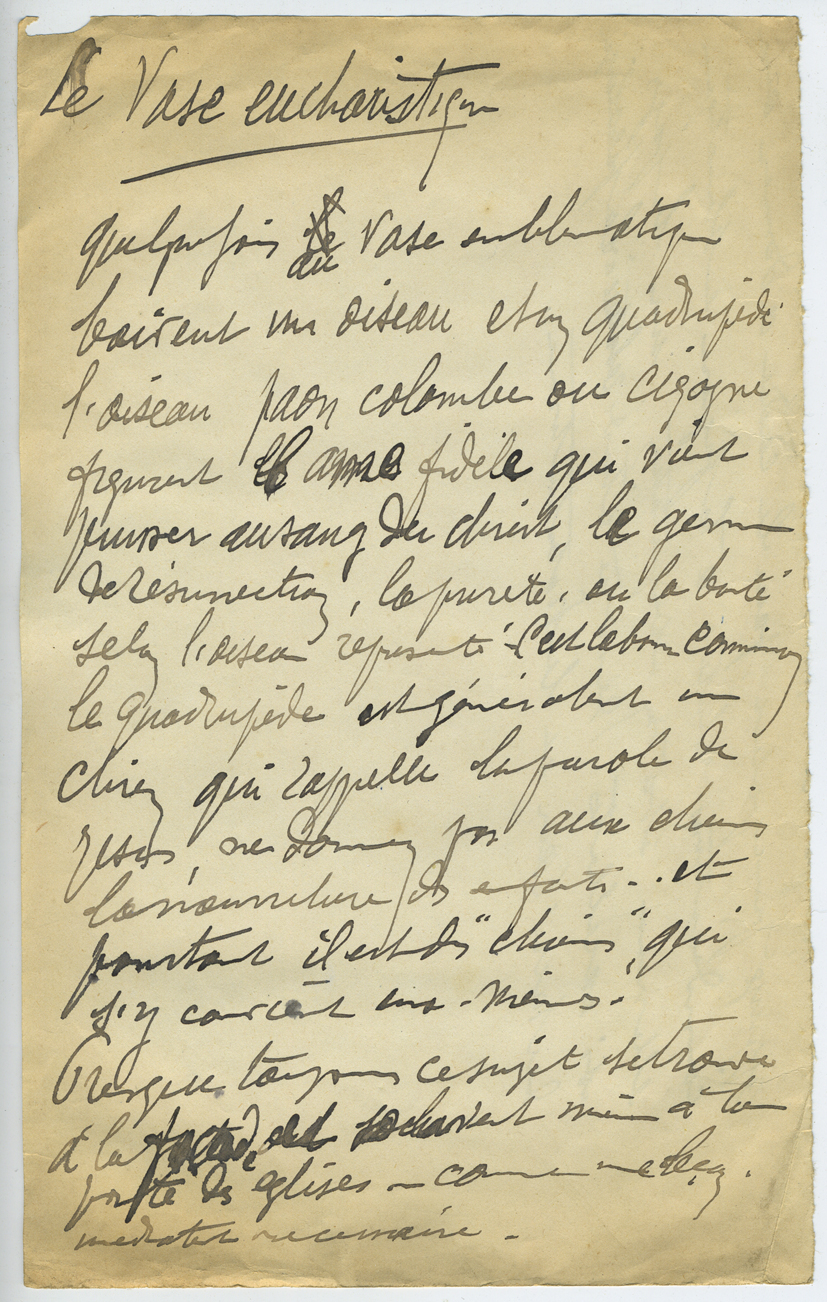 Le Vase eucharistique
Quelquefois au Vase emblématique
boivent un oiseau et un quadrupède
l'oiseau paon colombe ou cigogne
figurent l'âme fidèle qui vient
puiser au sang du christ, le germe
de résurrection, la pureté, ou la bonté
selon l'oiseau représenté. C'est la bonne communion
le quadrupède est généralement un
chien qui rappelle la parole de
Jesus, ne donnez pas aux chiens
la nourriture des enfants... et
pourtant il est des "chiens" qui
s'y convient eux-mêmes.
Presque toujours ce sujet se trouve
à la façade, et souvent même à la
porte des églises - comme une leçon
nécessaire.